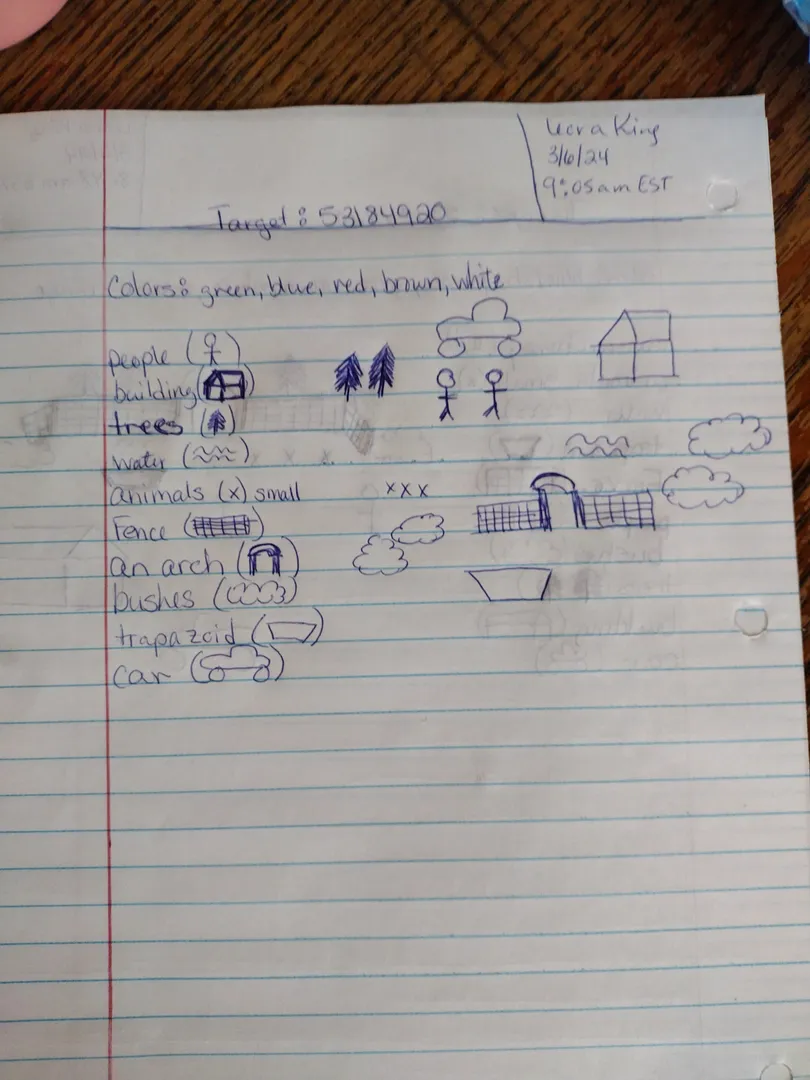 King
3/6/24
9:05am EST
Target: 53184920
Colors: green, blue, red, brown, white
people ( )
building ( )
trees ( )
water ( )
animals (x) small
xxx
Fence ( )
an arch ( )
bushes ( )
trapazoid ( )
car ( )